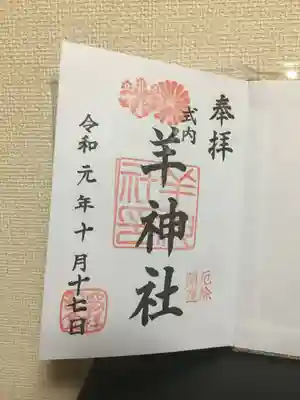 奉拝
式内
羊神社
令和元年十月十七日
厄除
開運